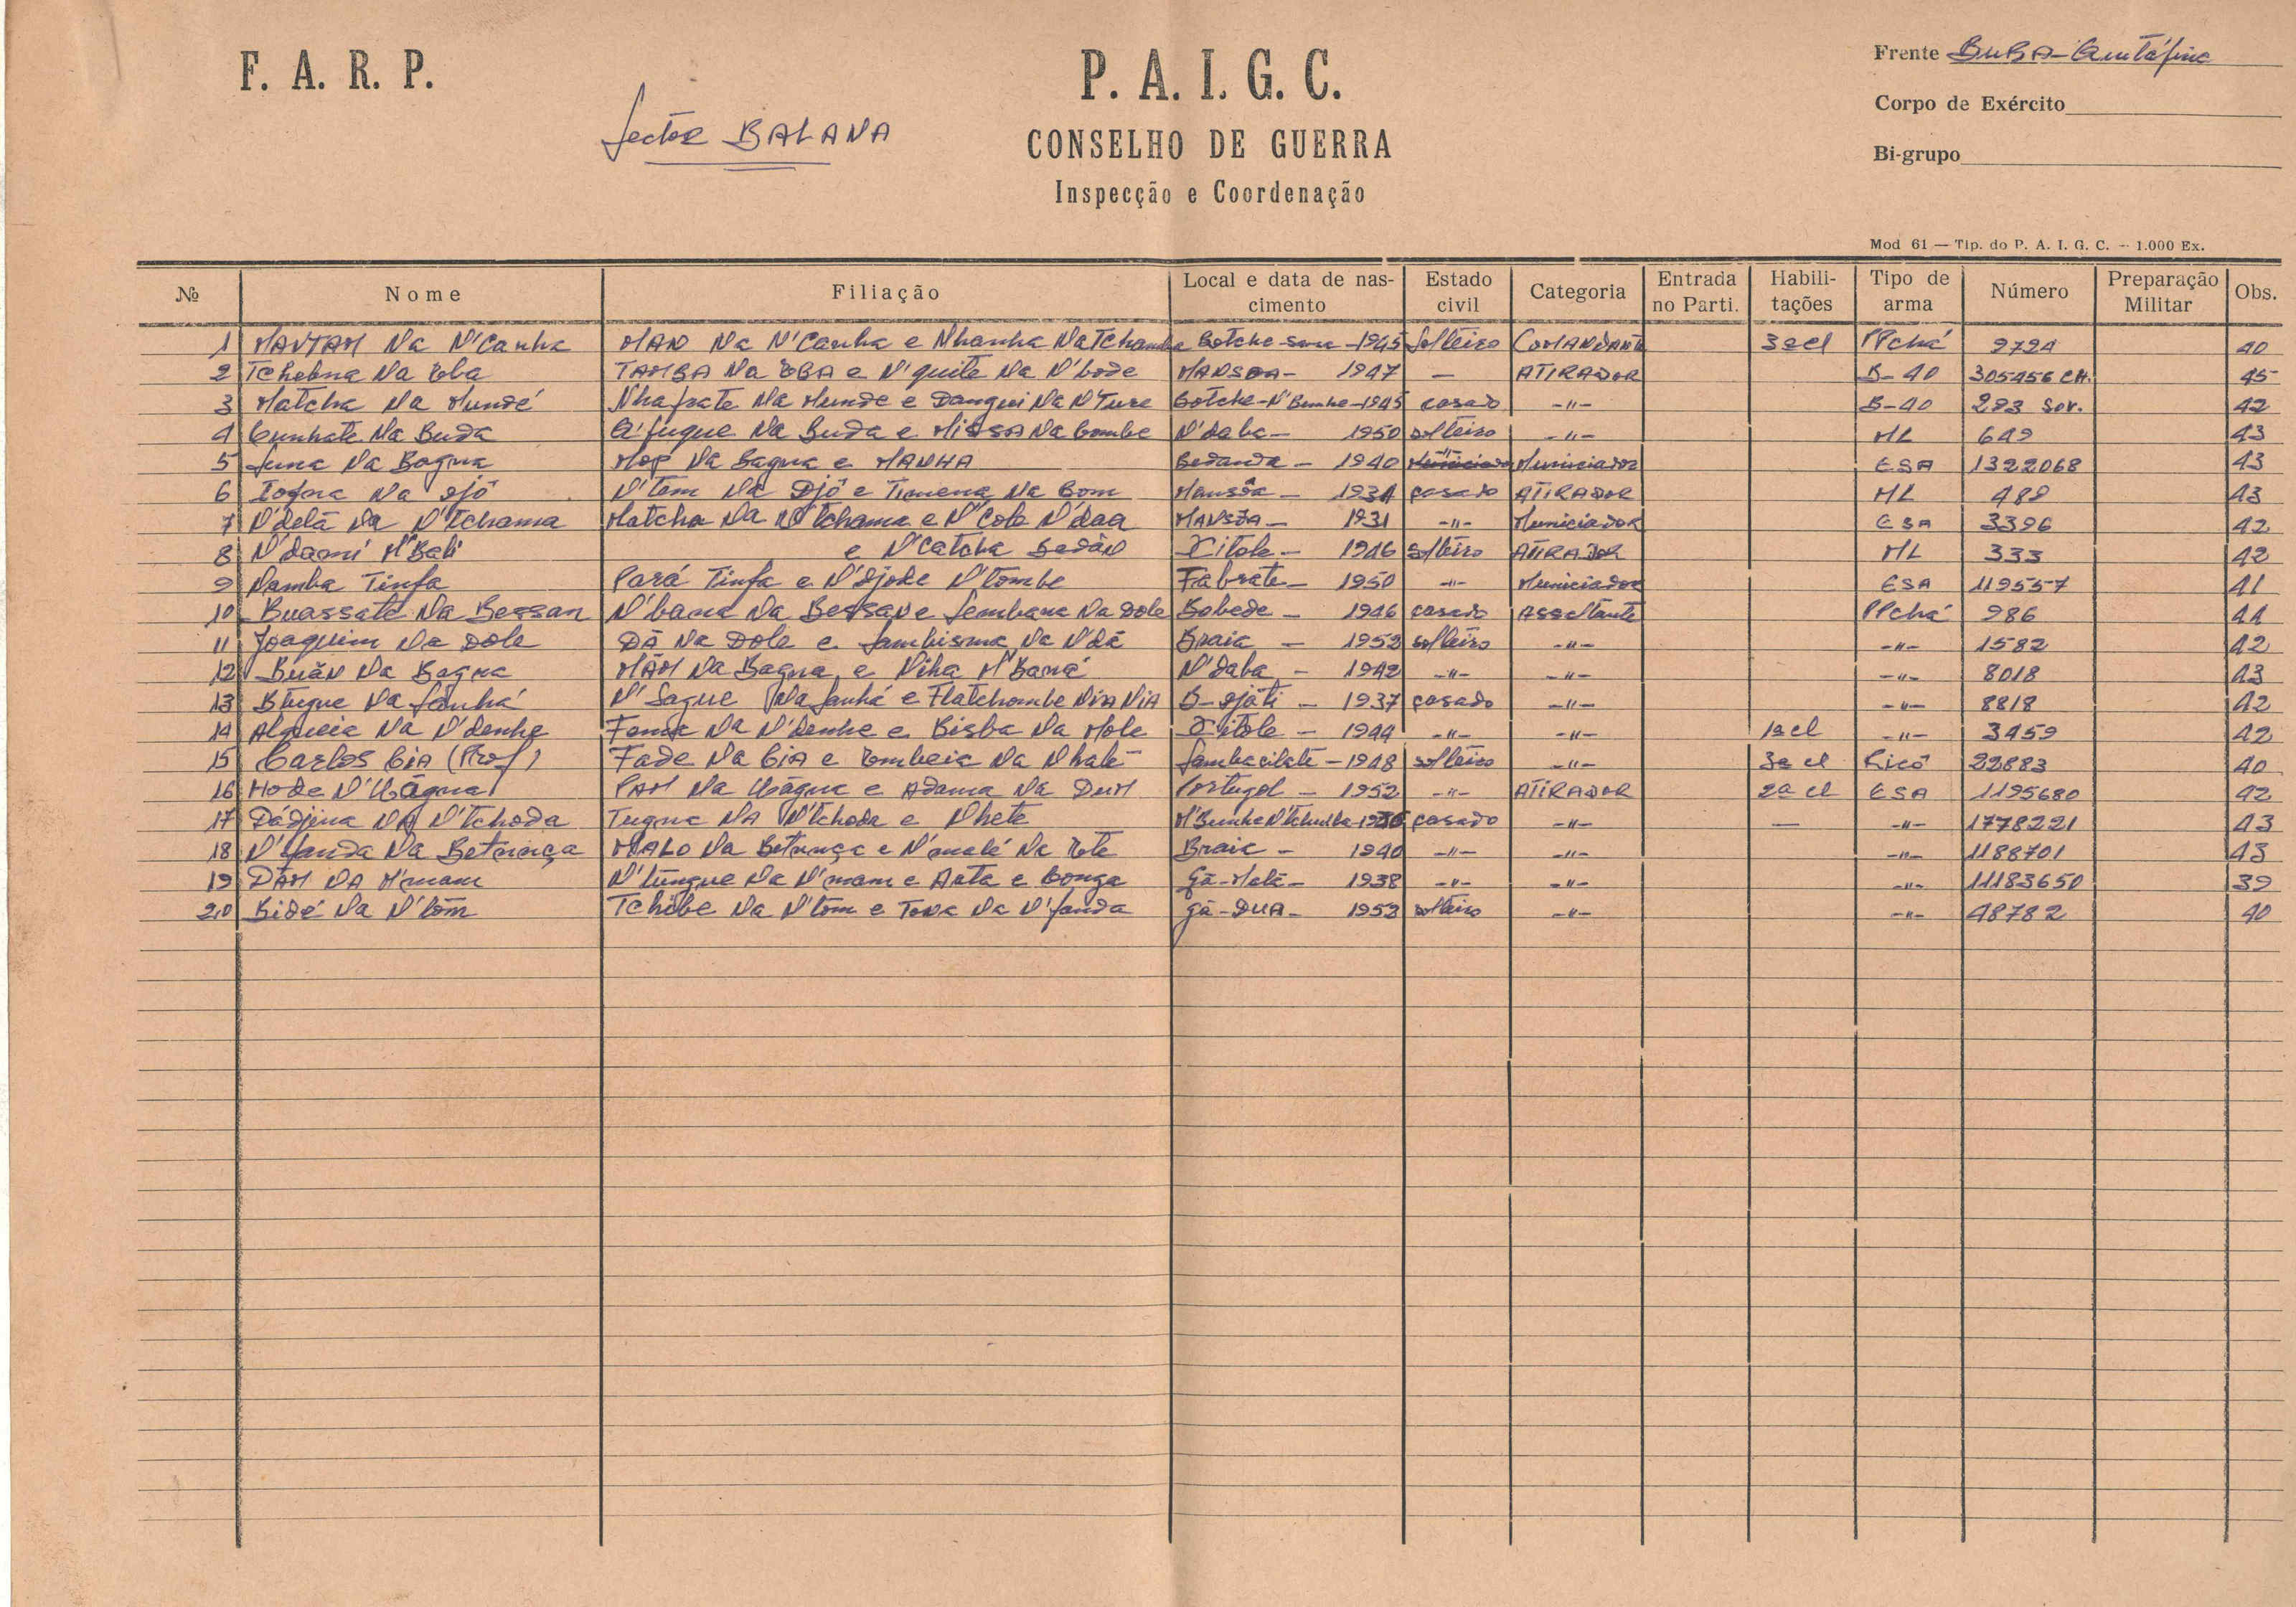 F. A. R. P.
P. A. I. G. C.
CONSELHO DE GUERRA
Inspecção e Coordenação
Sector BALANA
Frente BUBA-
Corpo de Exército
Bi-grupo
Mod 61 — Tip. do P. A. I. G. C. — 1.000 Ex.
№ Nome Filiação Local e data de nascimento Estado civil Categoria Entrada no Parti. Habilitações Tipo de arma Número Preparação Militar Obs.
1 Na N'Canha MAN Na N'Canha e Nhanha Na Tchamba 1945 Solteiro COMANDANTE 3ª cl PPchá 9724 40
2 Na TAMBA Na e N'quite Na N'bode MANSOA - 1947 — ATIRADOR B-40 305456 CH. 45
3 Matcha Na Munde Nhafrate Na Munde e Dangui Na N'Ture 1945 casado -"- B-40 293 Sov. 42
4 Cunhate Na Buda Na Buda e Na Combe N'daba - 1950 solteiro -"- ML 649 43
5 Na Bagna Na Bagna e MANHA Bedanda - 1940 -"- Municiador ESA 1322068 43
6 Na Djô N'Tem Na Djô e Na Bom Mansôa - 1934 casado ATIRADOR ML 488 43
7 N'delã Na N'Tchama Matcha Na N'tchama e N'Cole N'daa MANSÔA - 1931 -"- Municiador ESA 3396 42
8 M'Bali e N'Catcha Xitole - 1946 solteiro ATIRADOR ML 333 42
9 Namba Tinfa Pará Tinfa e N'djode N'tombe Fabrate - 1950 -"- Municiador ESA 119557 41
10 Buassate Na Bessan N'bana Na Bessan e Na Dole Bobede - 1946 casado Assaltante PPchá 986 41
11 Joaquim Na Dole Dã Na Dole e Na N'dã Braia - 1952 solteiro -"- -"- 1582 42
12 Buãn Na Bagna MÃM Na Bagna e Niha M'Baná N'daba - 1942 -"- -"- -"- 8018 43
13 Btugue Na Sanhá N'Sague Na Sanhá e 1937 casado -"- -"- 8818 42
14 Na N'denhe Na N'denhe e Bisba Na Mole Xitole - 1944 -"- -"- 1ª cl -"- 3459 42
15 Carlos CIA (Prof) Fade Na CIA e Na Nhalé 1948 solteiro -"- 3ª cl Ricô 22883 40
16 Mode PAM Na e Adama Na DUM Portugol - 1952 -"- ATIRADOR 2ª cl ESA 1195680 42
17 Dádjina NA N'Tchoda Tugna NA N'Tchoda e Nhete casado -"- — -"- 1778221 43
18 Na Betnunça MALO Na Betnunça e N'malé Na Braia - 1940 -"- -"- -"- 1188701 43
19 DAM NA N'mam N'tungue Na N'mam e Anta e Conga Gã-Melã - 1938 -"- -"- -"- 11183650 39
20 Bidé Na N'tôm Tchobe Na N'tôm e Na N'fanda Gã-DUA - 1952 solteiro -"- -"- 48782 40